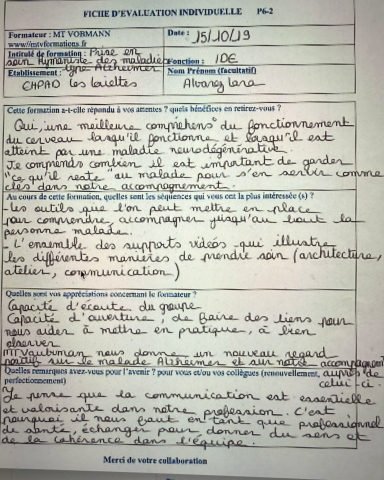 FICHE D'EVALUATION INDIVIDUELLE P6-2
Formateur : MT VOBMANN
www//mtvformations.fr
Date : 15/10/19
Intitulé de formation : Prise en
soin Humaniste des maladies
type Alzheimer
Fonction : IDE
Etablissement :
EHPAD les
Nom Prénom (facultatif)
Alvarez Lara
Cette formation a-t-elle répondu à vos attentes ? quels bénéfices en retirez-vous ?
Oui, une meilleure compréhens° du fonctionnement
du cerveau lorsqu'il fonctionne et lorsqu'il est
atteint par une maladie neurodégénérative.
Je comprends combien il est important de garder
"ce qu'il reste" au malade pour s'en servir comme
clés dans notre accompagnement.
Au cours de cette formation, quelles sont les séquences qui vous ont la plus intéressée (s) ?
- les outils que l'on peut mettre en place
pour comprendre, accompagner jusqu'au bout la
personne malade.
- L'ensemble des supports vidéos qui illustre
les différentes manières de prendre soin (architecture,
atelier, communication)
Quelles sont vos appréciations concernant le formateur ?
Capacité d'écoute du groupe
Capacité d'ouverture, de faire des liens pour
nous aider à mettre en pratique, à bien
observer
MT Vaubman nous donne un nouveau regard
positif sur le malade Alzheimer et sur notre accompagnement
auprès de
celui-ci.
Quelles remarques avez-vous pour l'avenir ? pour vous et/ou vos collègues (renouvellement,
perfectionnement)
Je pense que la communication est essentielle
et valorisante dans notre profession. C'est
pourquoi il nous faut en tant que professionnel
de santé, échanger pour donner du sens et
de la cohérence dans l'équipe.
Merci de votre collaboration